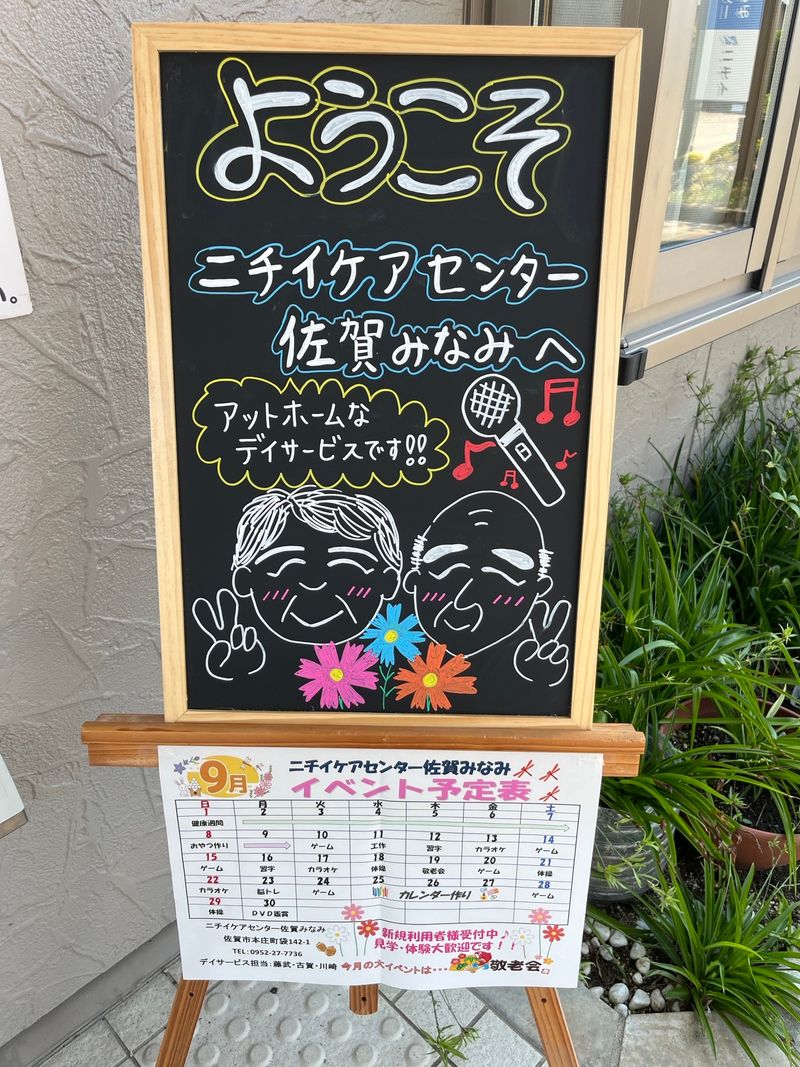 ようこそ
ニチイケアセンター
佐賀みなみへ
アットホームな
デイサービスです!!
9月
ニチイケアセンター佐賀みなみ
イベント予定表
日 月 火 水 木 金 土
1 2 3 4 5 6 7
健康週間
8 9 10 11 12 13 14
おやつ作り ゲーム 工作 習字 カラオケ ゲーム
15 16 17 18 19 20 21
ゲーム 習字 カラオケ 体操 敬老会 ゲーム 体操
22 23 24 25 26 27 28
カラオケ 脳トレ ゲーム カレンダー作り ゲーム
29 30
体操 DVD鑑賞
ニチイケアセンター佐賀みなみ
佐賀市本庄町袋142-1
TEL:0952-27-7736
デイサービス担当:藤武・古賀・川崎
新規利用者様受付中♪
見学・体験大歓迎です!!
今月の大イベントは・・・敬老会